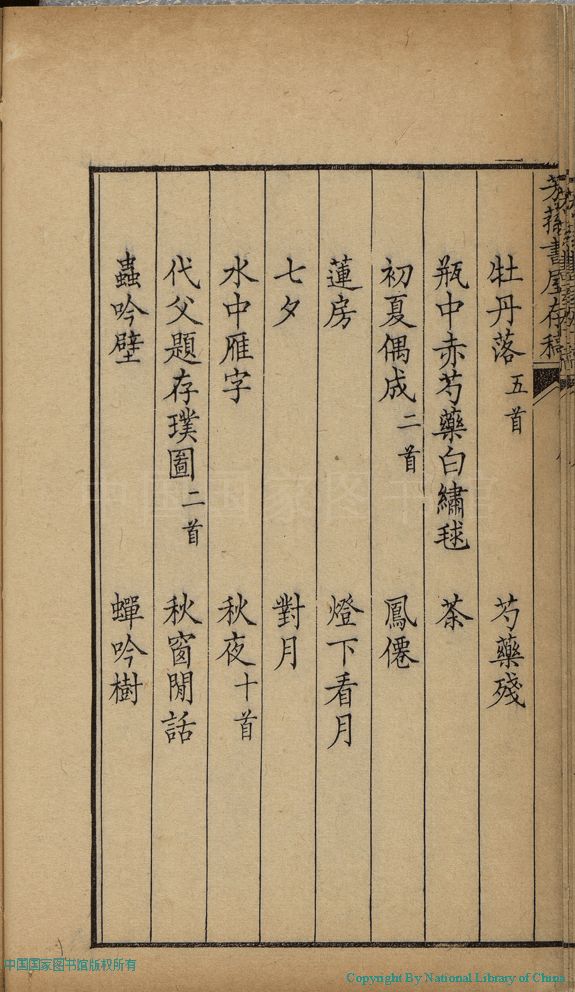 芳蓀書屋存稿
牡丹落五首　芍藥殘
瓶中赤芍藥白繡毬　荼
初夏偶成二首　鳳僊
蓮房　燈下看月
七夕　對月
水中雁字　秋夜十首
代父題存璞圖二首　秋窗閒話
蟲吟壁　蟬吟樹
中国国家图书馆
中国国家图书馆版权所有
Copyright By National Library of China